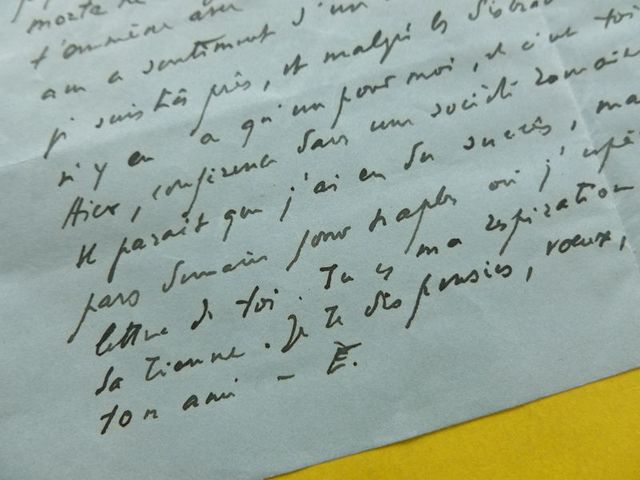 morte
t'emmène avec
a un sentiment d'un
je suis très près, et malgré les
n'y en a qu'un pour moi, et c'est toi
Hier, conférence dans une société romaine
Il paraît que j'ai eu du succès,
pars demain pour Naples où j'espè
lettre de toi. Tu es ma respiration
la tienne. Je te dis pensées, voeux,
ton ami - E.